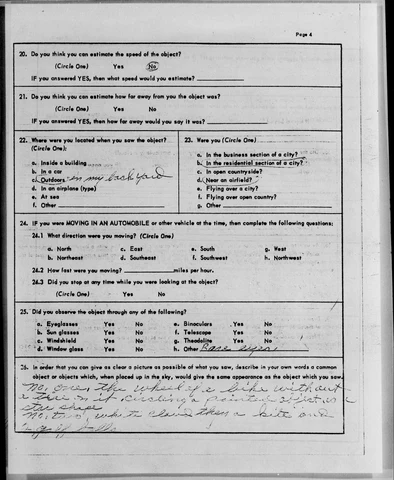 Page 4
20. Do you think you can estimate the speed of the object?
(Circle One) Yes No
IF you answered YES, then what speed would you estimate?
21. Do you think you can estimate how far away from you the object was?
(Circle One) Yes No
IF you answered YES, then how far away would you say it was?
22. Where were you located when you saw the object?
(Circle One):
a. Inside a building
b. In a car
c. Outdoors in my back yard
d. In an airplane (type)
e. At sea
f. Other
23. Were you (Circle One)
a. In the business section of a city?
b. In the residential section of a city?
c. In open countryside?
d. Near an airfield?
e. Flying over a city?
f. Flying over open country?
g. Other
24. IF you were MOVING IN AN AUTOMOBILE or other vehicle at the time, then complete the following questions:
24.1 What direction were you moving? (Circle One)
a. North c. East e. South g. West
b. Northeast d. Southeast f. Southwest h. Northwest
24.2 How fast were you moving? miles per hour.
24.3 Did you stop at any time while you were looking at the object?
(Circle One) Yes No
25. Did you observe the object through any of the following?
a. Eyeglasses Yes No e. Binoculars Yes No
b. Sun glasses Yes No f. Telescope Yes No
c. Windshield Yes No g. Theodolite Yes No
d. Window glass Yes No h. Other Bare eyes
26. In order that you can give as clear a picture as possible of what you saw, describe in your own words a common
object or objects which, when placed up in the sky, would give the same appearance as the object which you saw.
No, one, the wheel of a bike without
a tire on it circling a pointed object, in a
star shape
No, two, white cloud then a kite and
balls